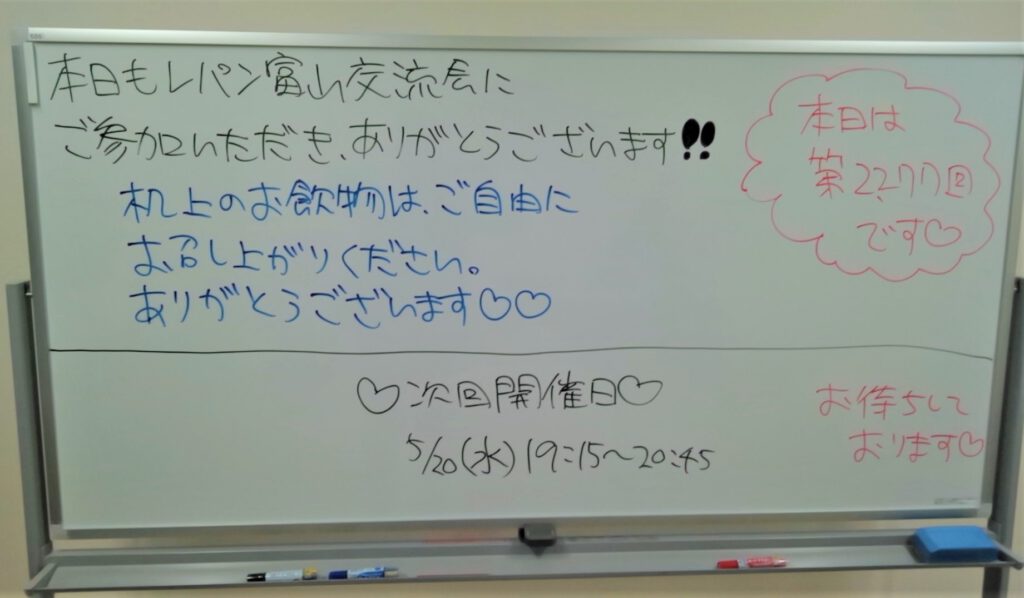 本日もレパン富山交流会に
ご参加いただき、ありがとうございます!!
机上のお飲物は、ご自由に
お召し上がりください。
ありがとうございます♡♡
本日は
第2,277回
です♡
♡次回開催日♡
5/20(水)19:15～20:45
お待ちして
おります♡